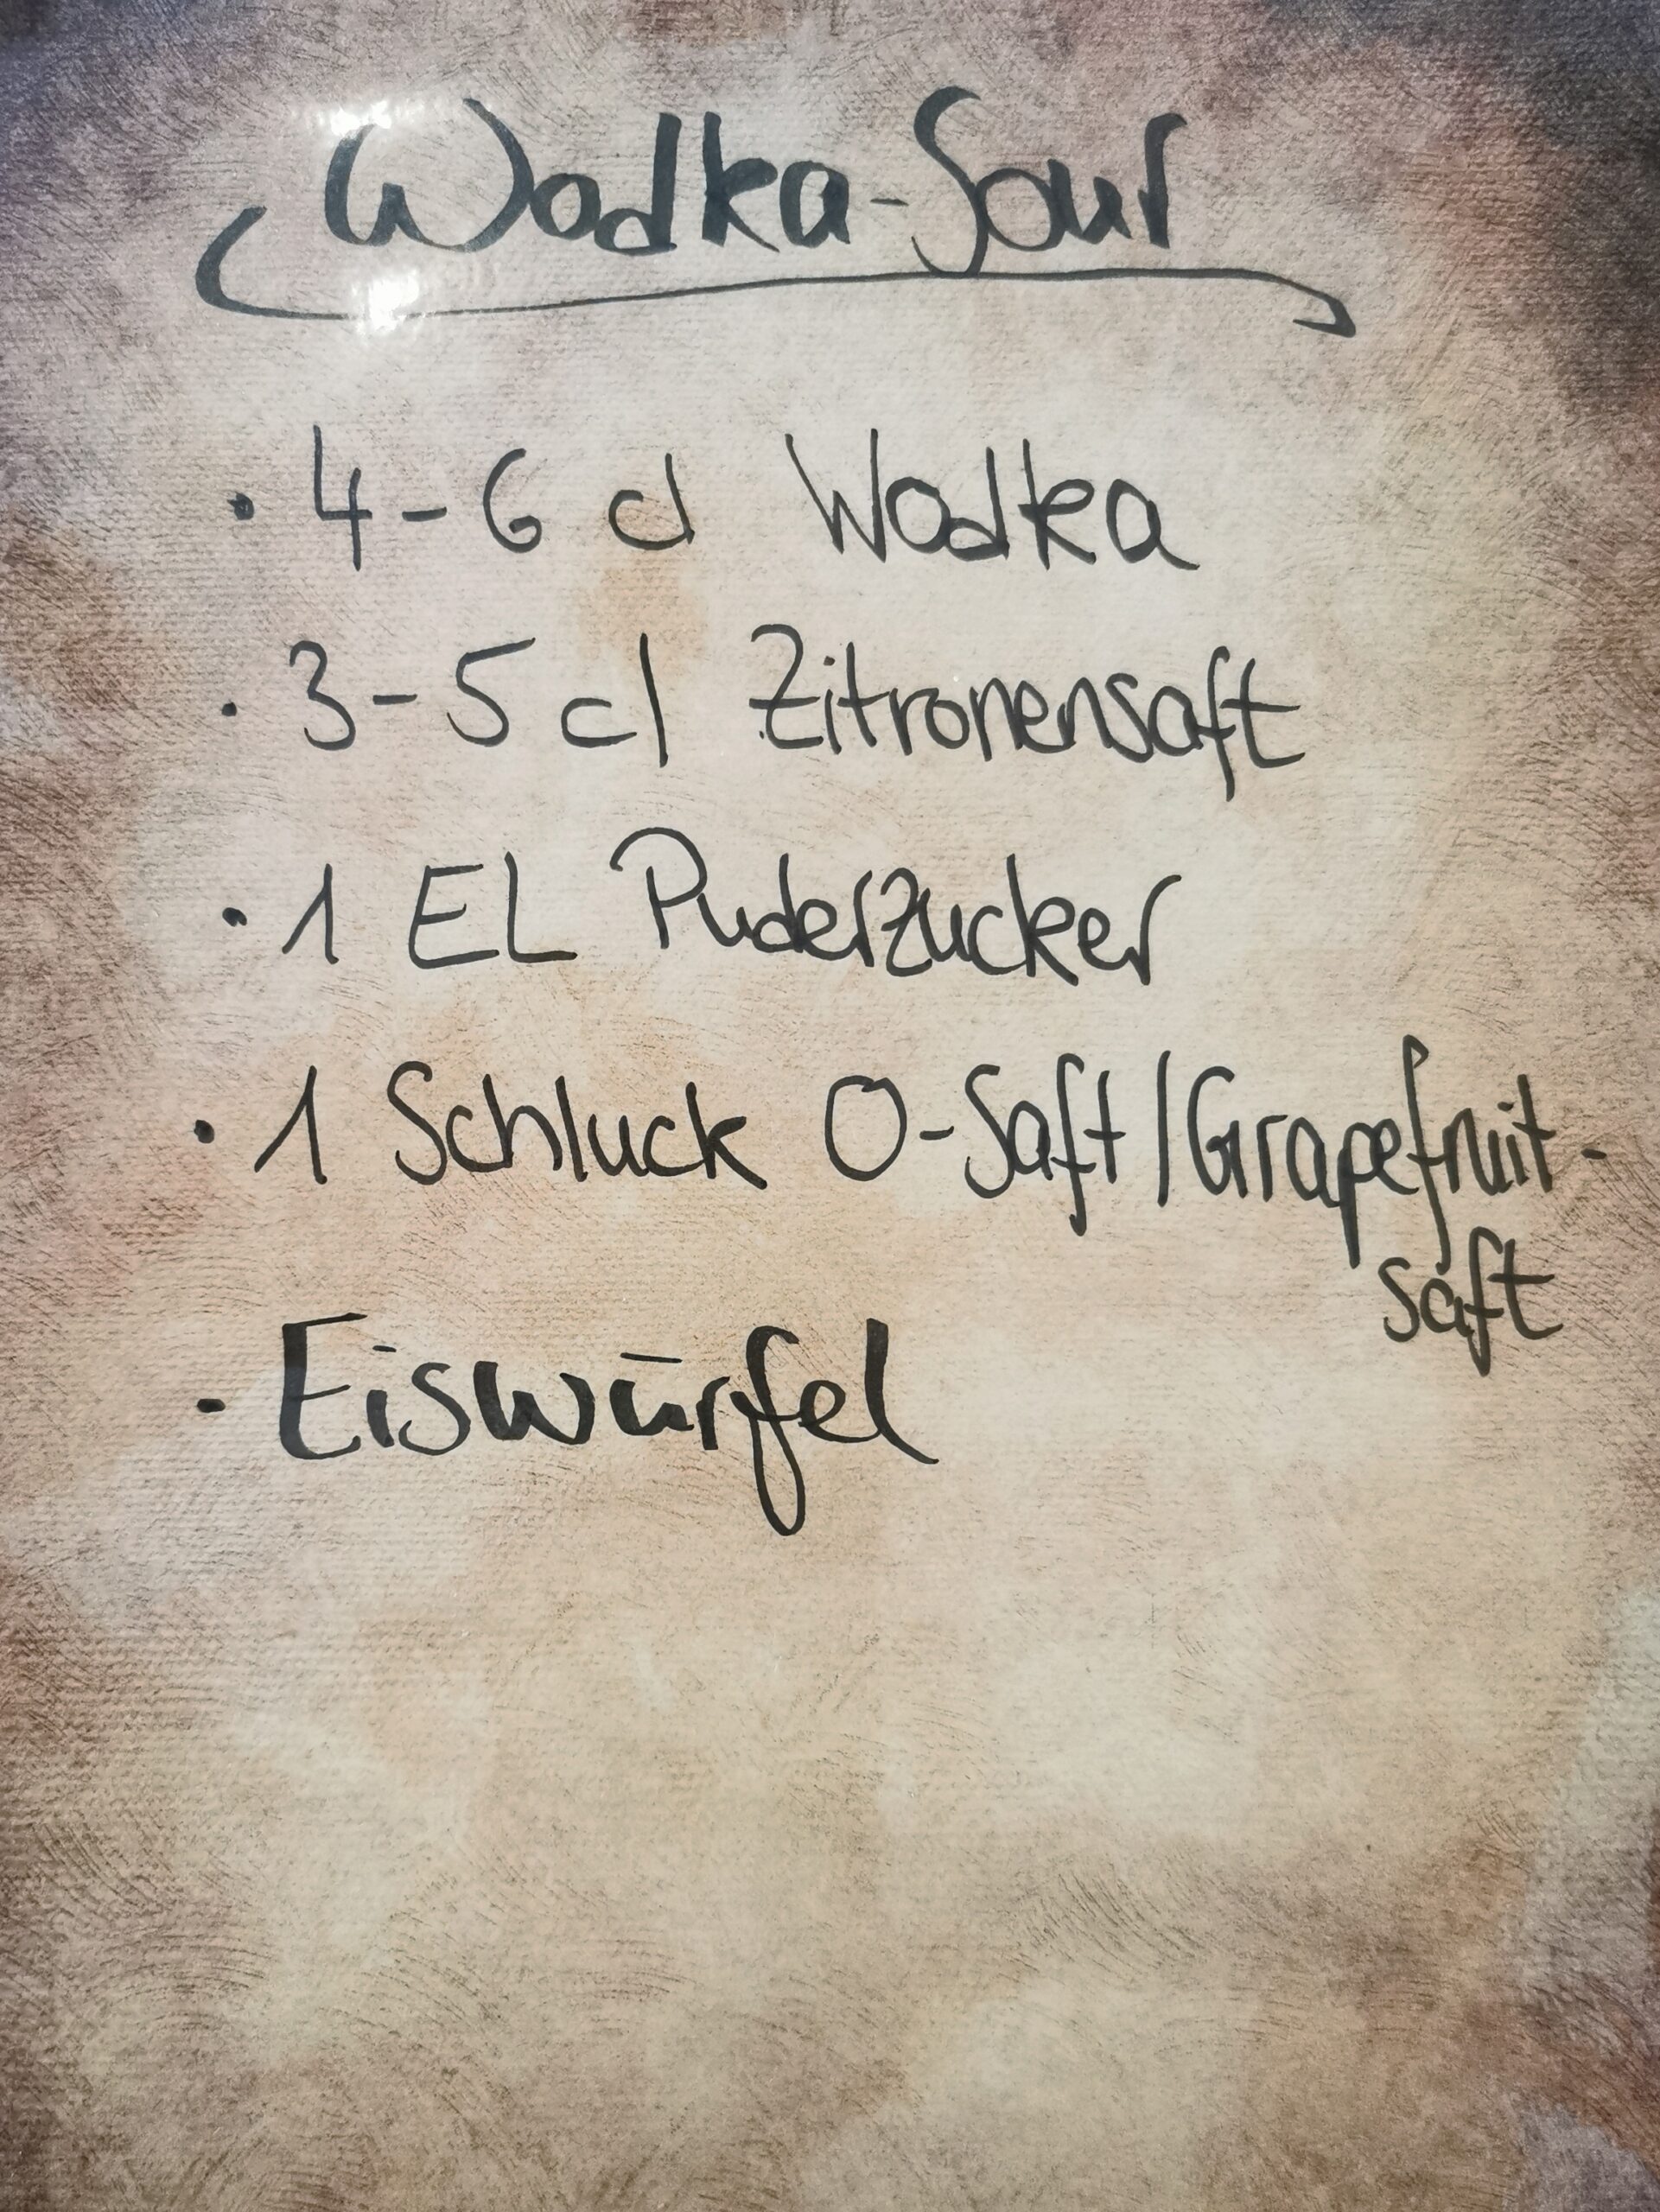 Wodka-Sour
• 4-6 cl Wodka
• 3-5 cl Zitronensaft
• 1 EL Puderzucker
• 1 Schluck O-Saft/Grapefruit-
saft
• Eiswürfel